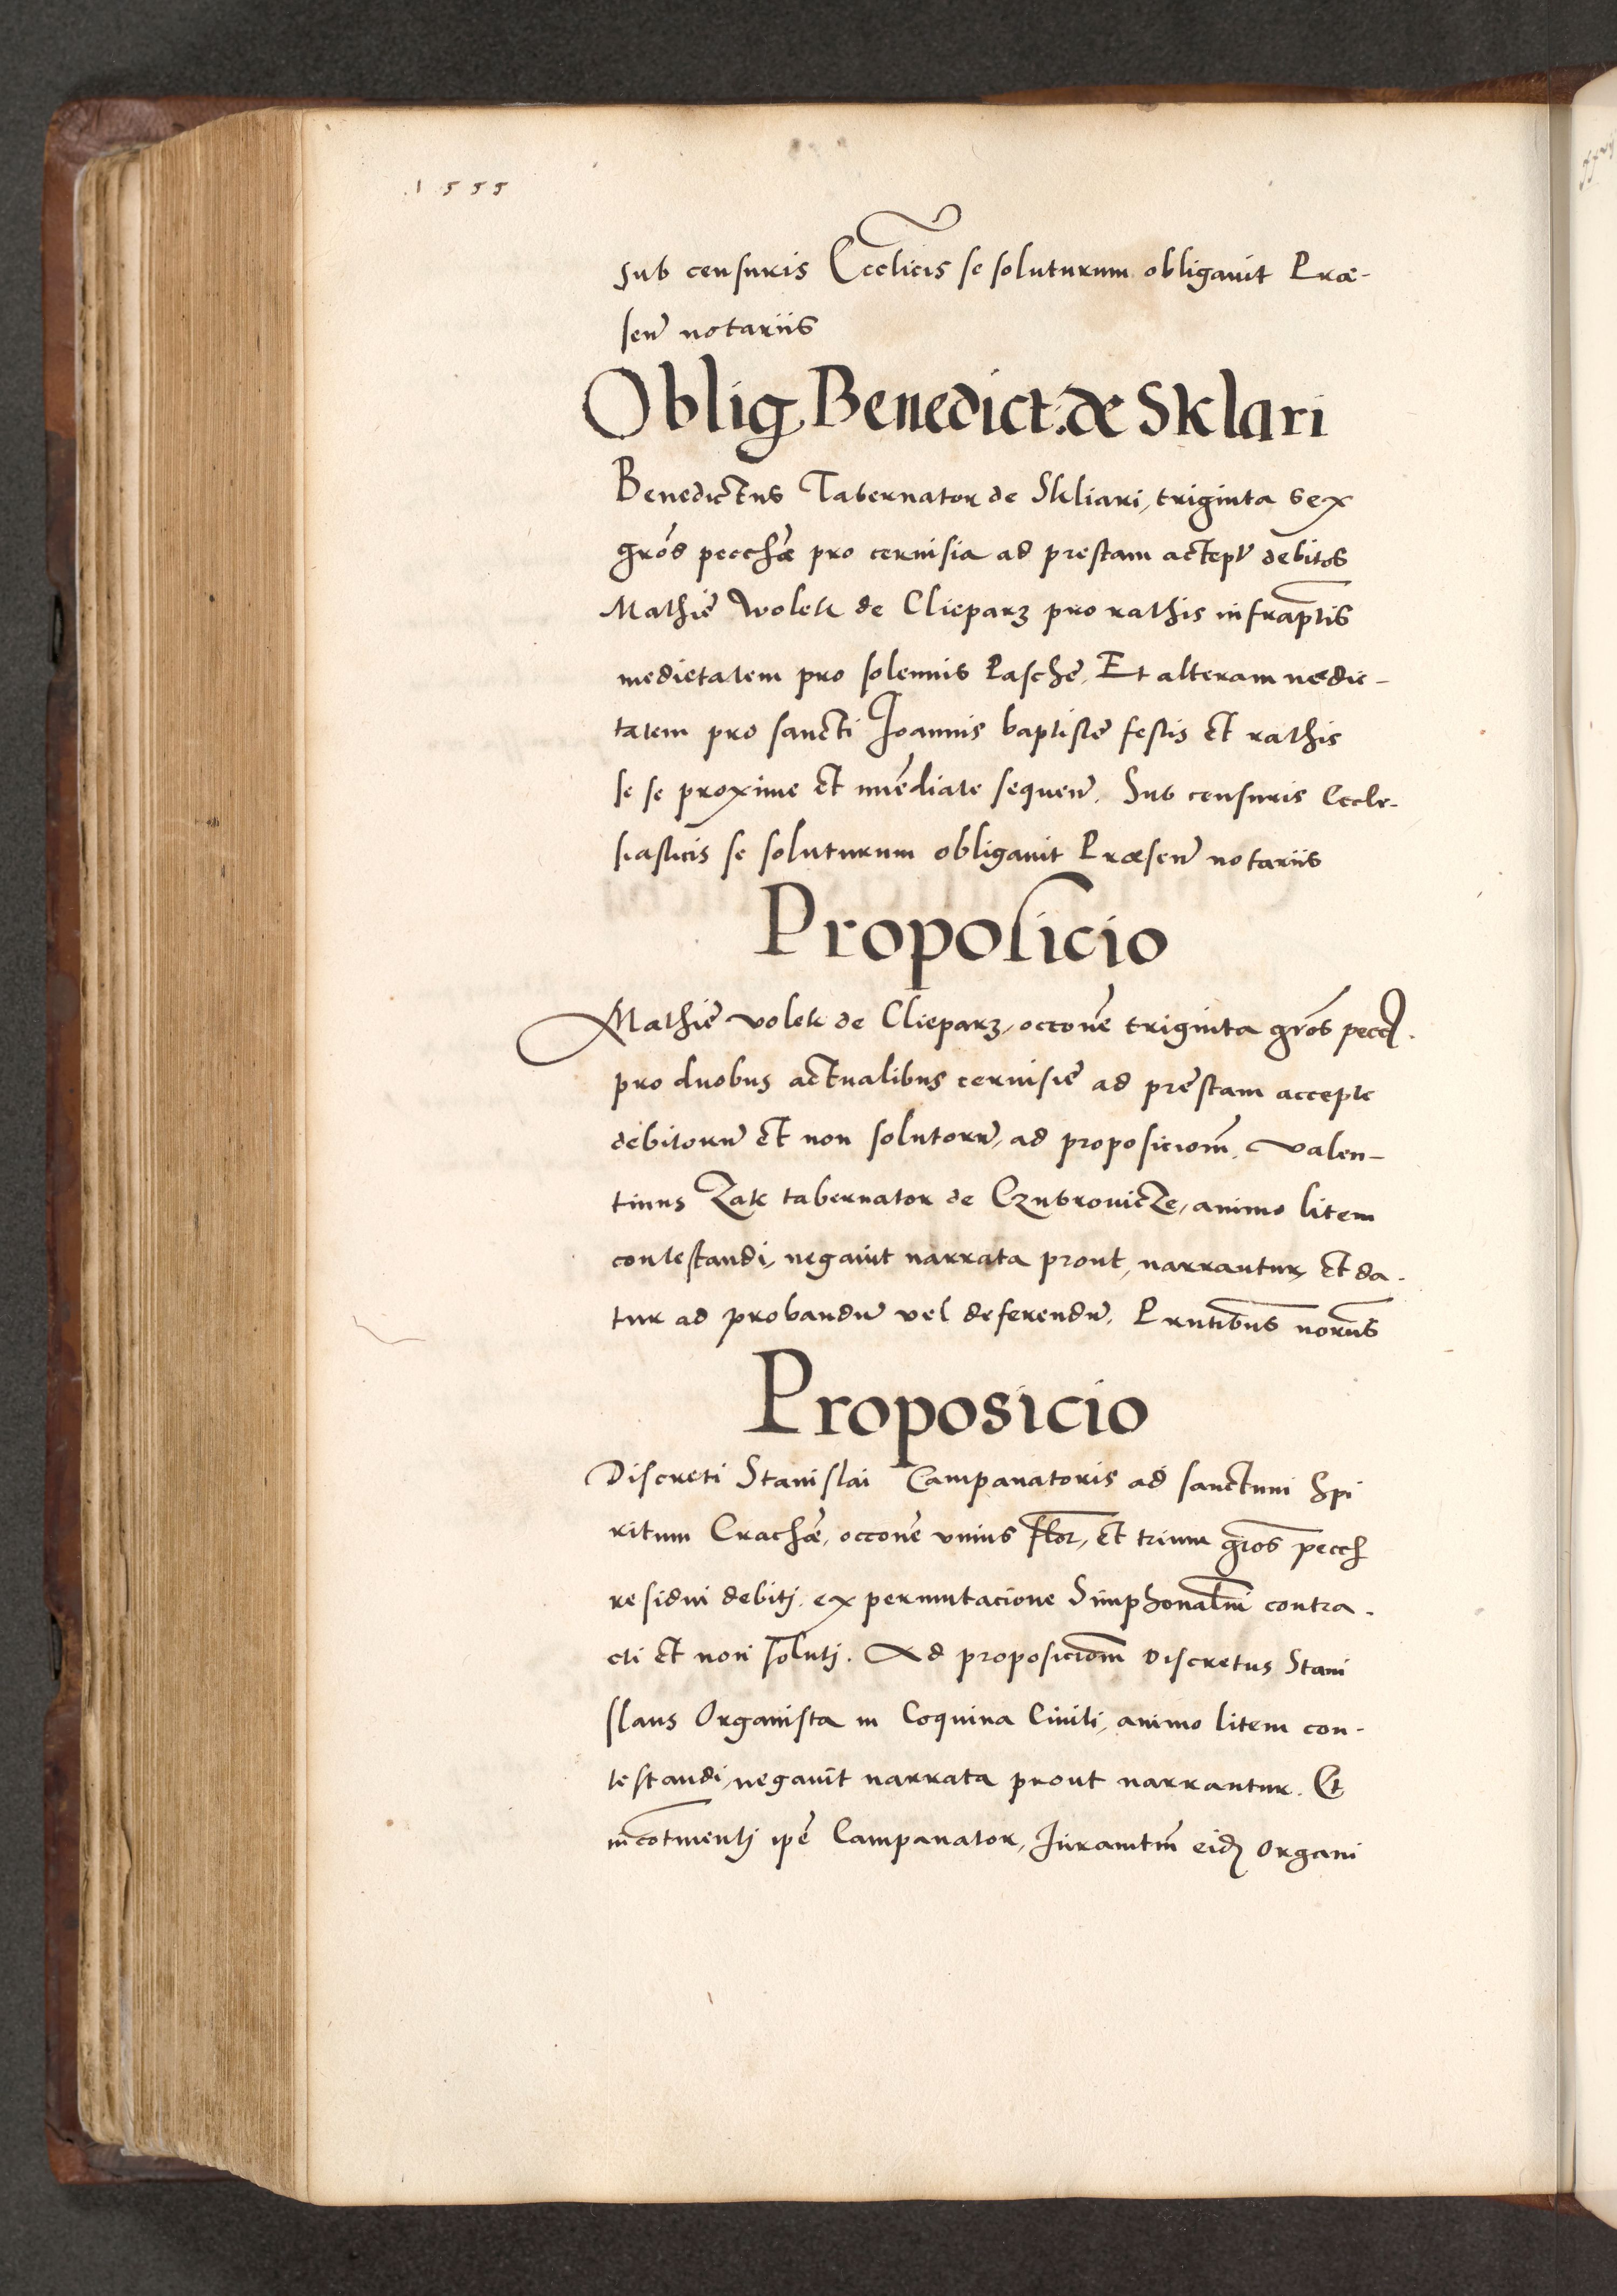 1555
sub censuris Eccl̃icis se soluturum obligavit Præ-
señ notariis
Oblig Benedict: de Sklari
Benedictus Tabernator de Skliari, triginta sex
grós pecchæ pro cervisia ad prestam accept̃ debitos
Mathię Wolek de Clieparz pro rathis infrap̃tis
medietatem pro solennis Paschę, Et alteram medie-
tatem pro sancti Joannis baptistę festis et rathis
se se proxime et im̃ediate sequeñ. Sub censuris Eccle-
siasticis se soluturum obligavit Præseñ notariis
Proposicio
Mathię volek de Clieparz, occoñe triginta grós pecch.
pro duobus actualibus cervisię ad pręstam accepte
debitorũ et non solutorũ, ad proposiciom̃. Valen-
tinus Zak tabernator de Czubrovicze, animo litem
contestandi, negavit narrata prout, narrantur, et da-
tur ad probandũ vel deferendũ. Prñtibus noriis
Proposicio
Discreti Stanislai Campanatoris ad sanctum Spi
ritum Crachæ, occoñe unius flor, et trium gros pecch
residui debitj. ex permutacione Simphonalm̃ contra-
cti et non solutj. Ad proposiciom̃ Discretus Stani
slaus Organista in Coquina Civili, animo litem con-
testandi, negavit narrata prout narrantur. Et
incõtinentj ip̃e Campanator, Juramtm̃ eidẽ Organi